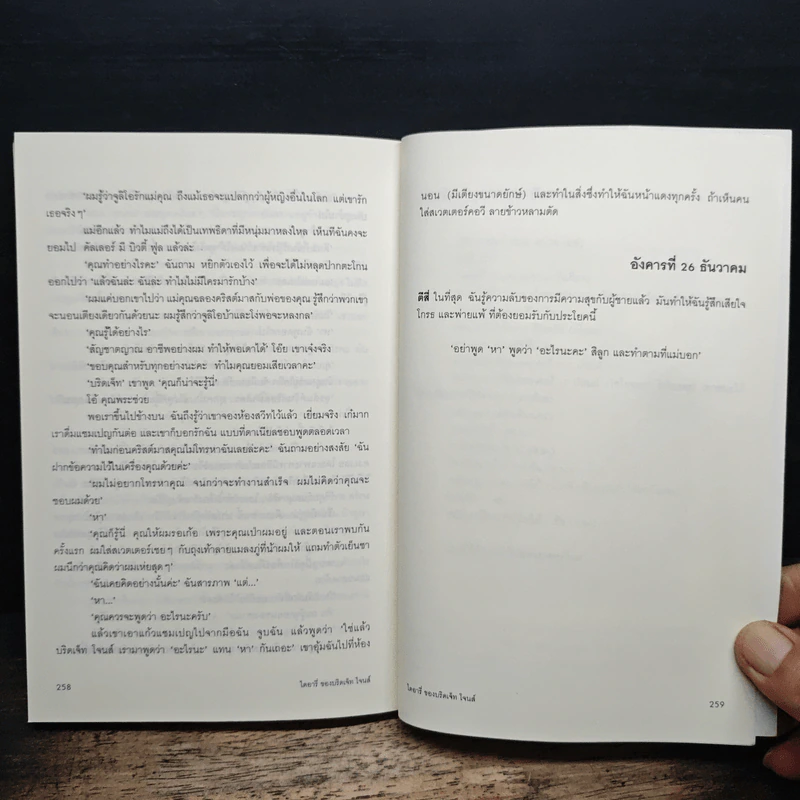 'ผมรู้ว่าจูลิโอรักแม่คุณ ถึงแม้เธอจะแปลกกว่าผู้หญิงอื่นในโลก แต่เขารัก
เธอจริงๆ'
แม่อีกแล้ว ทำไมแม่ถึงได้เป็นเทพธิดาที่มีหนุ่มมาหลงใหล เห็นทีฉันคงจะ
ยอมไป คัลเลอร์ มี บิวตี้ ฟูล แล้วล่ะ
'คุณทำอย่างไรคะ' ฉันถาม หยิกตัวเองไว้ เพื่อจะได้ไม่หลุดปากตะโกน
ออกไปว่า 'แล้วฉันล่ะ ฉันล่ะ ทำไมไม่มีใครมารักบ้าง'
'ผมแค่บอกเขาไปว่า แม่คุณฉลองคริสต์มาสกับพ่อของคุณ รู้สึกว่าพวกเขา
จะนอนเตียงเดียวกันด้วยนะ ผมรู้สึกว่าจูลิโอบ้าและโง่พอจะหลงกล'
'คุณรู้ได้อย่างไร'
'สัญชาตญาณ อาชีพอย่างผม ทำให้พอเดาได้' โอ๊ย เขาเจ๋งจริง
'ขอบคุณสำหรับทุกอย่างนะคะ ทำไมคุณยอมเสียเวลาคะ'
'บริดเจ็ท' เขาพูด 'คุณก็น่าจะรู้นี่'
โอ้ คุณพระช่วย
พอเราขึ้นไปข้างบน ฉันถึงรู้ว่าเขาจองห้องสวีทไว้แล้ว เยี่ยมจริง เก๋มาก
เราดื่มแชมเปญกันต่อ และเขาก็บอกรักฉัน แบบที่ดาเนียลชอบพูดตลอดเวลา
'ทำไมก่อนคริสต์มาสคุณไม่โทรหาฉันเลยล่ะคะ' ฉันถามอย่างสงสัย 'ฉัน
ฝากข้อความไว้ในเครื่องคุณด้วยค่ะ'
'ผมไม่อยากโทรหาคุณ จนกว่าจะทำงานสำเร็จ ผมไม่คิดว่าคุณจะ
ชอบผมด้วย'
'หา'
'คุณก็รู้นี่ คุณให้ผมรอเก้อ เพราะคุณเป่าผมอยู่ และตอนเราพบกัน
ครั้งแรก ผมใส่สเวตเตอร์เชยๆ กับถุงเท้าลายแมลงภู่ที่น้าผมให้ แถมทำตัวเย็นชา
ผมนึกว่าคุณคิดว่าผมเห่ยสุดๆ'
'ฉันเคยคิดอย่างนั้นค่ะ' ฉันสารภาพ 'แต่...'
'หา...'
'คุณควรจะพูดว่า อะไรนะครับ'
แล้วเขาเอาแก้วแชมเปญไปจากมือฉัน จูบฉัน แล้วพูดว่า 'ใช่แล้ว
บริดเจ็ท โจนส์ เรามาพูดว่า 'อะไรนะ' แทน 'หา' กันเถอะ' เขาอุ้มฉันไปที่ห้อง
258
ไดอารี่ ของบริดเจ็ท โจนส์
นอน (มีเตียงขนาดยักษ์) และทำในสิ่งซึ่งทำให้ฉันหน้าแดงทุกครั้ง ถ้าเห็นคน
ใส่สเวตเตอร์คอวี ลายข้าวหลามตัด
อังคารที่ 26 ธันวาคม
ตีสี่ ในที่สุด ฉันรู้ความลับของการมีความสุขกับผู้ชายแล้ว มันทำให้ฉันรู้สึกเสียใจ
โกรธ และพ่ายแพ้ ที่ต้องยอมรับกับประโยคนี้
'อย่าพูด 'หา' พูดว่า 'อะไรนะคะ' สิลูก และทำตามที่แม่บอก'
ไดอารี่ ของบริดเจ็ท โจนส์
259